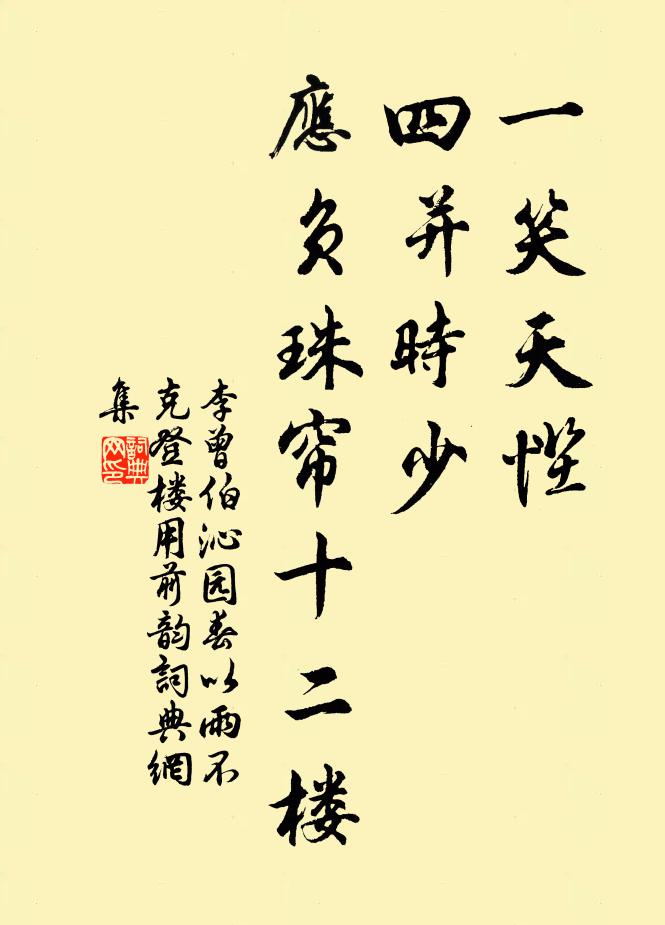 一笑天悭
四并時少
應负珠帘十二楼
李曾伯沁园春以雨不
克登楼用前韵詞典網
集
詞典